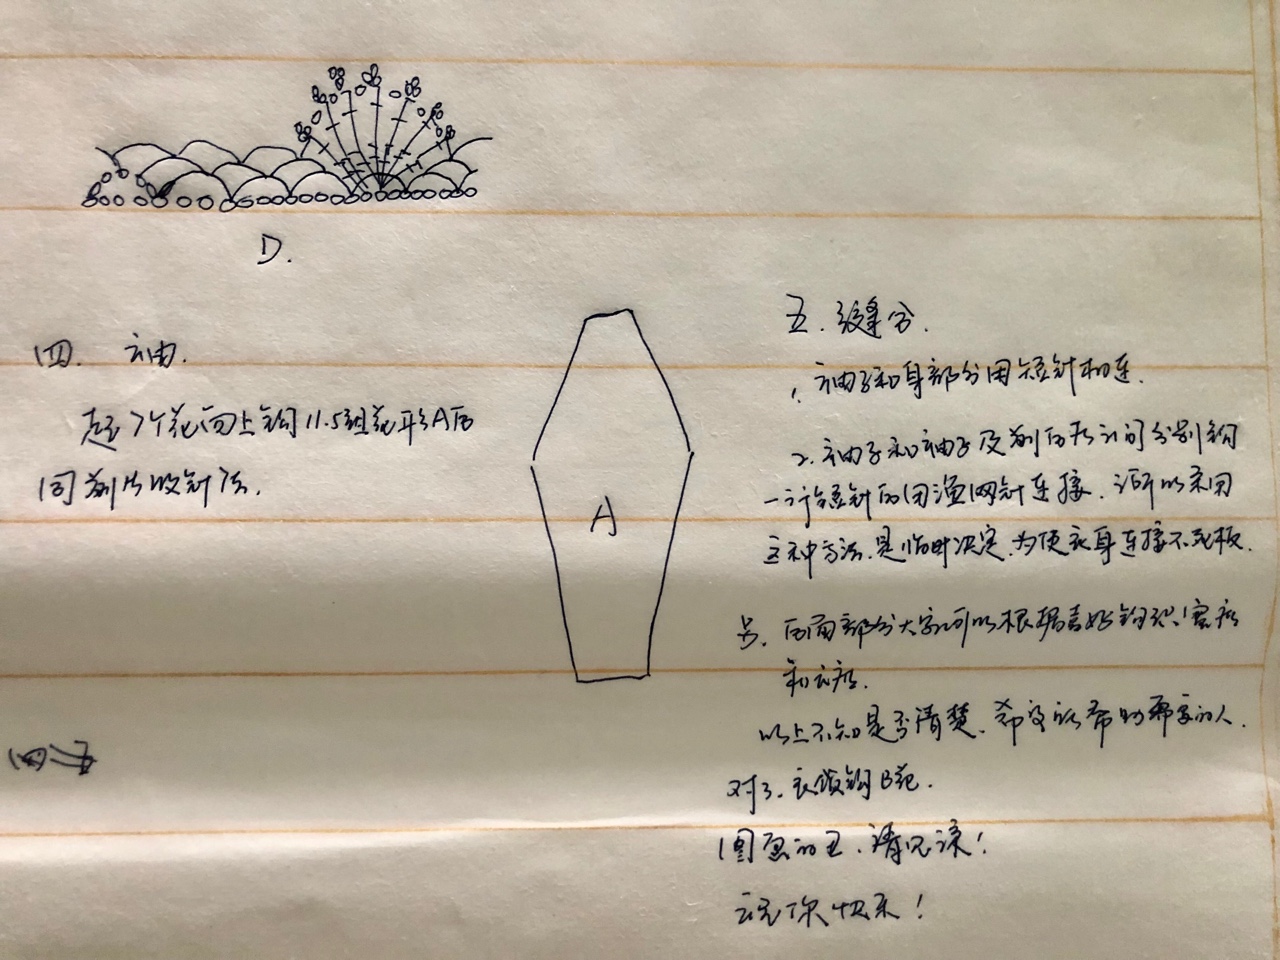 D.
四. 袖.
起7个花向上钩11.5组花形A后
同前片收针法.
A
五. 缝合.
1, 袖子和身部分用短针相连.
2. 袖子和袖子及前后片之间分别钩
一行短针后用渔网针连接. 之所以采用
这种方法. 是临时决定. 为使衣身连接不死板.
另. 后面部分大家可以根据喜好钩织
和衣摆.
以上不知是否清楚. 希望能帮助需要的人.
对了. 衣领钩B花.
图画的丑. 请见谅!
祝你快乐!
四 五